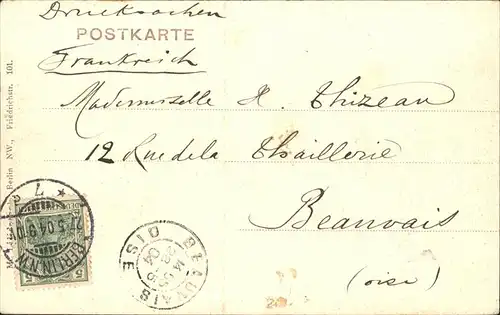 Drucksachen
POSTKARTE
Frankreich
Mademoiselle H. Thizeau
12 Rue de la Thaillerie
Beauvais
(oise)
Berlin NW., Friedrichstr. 101.
BERLIN N.W.
27.5.04.9-10
* 7
5 5
BEAUVAIS
OISE
04